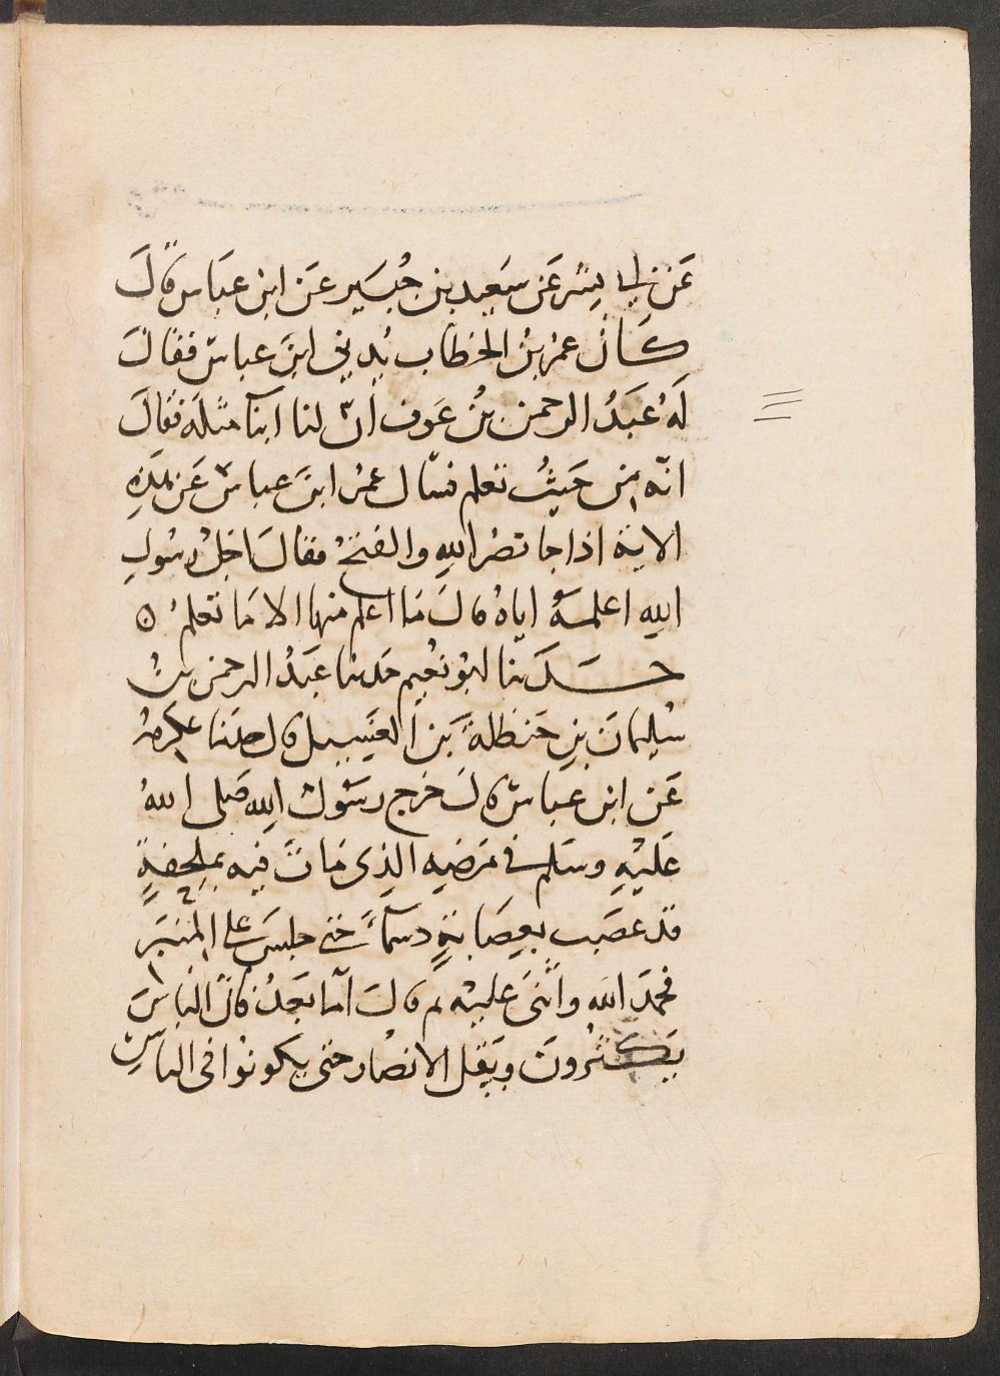 عَن ابي بشر عَن سَعيد بن جُبَير عَن ابن عبَاس قالَ
كَانَ عمر بنُ الخطاب يُدني ابنَ عباس فقالَ
لَهُ عَبَدُ الرحمن بنُ عَوف انّ لنا ابنآ مثله فقالَ
انّه من حَيثُ تعلم فسال عمر ابنَ عباس عَن هذِهِ
الاية اذا جا نصر اللهِ والفتحُ فقالَ اجلُ رسُولِ
اللهِ اعلمهُ اياهُ قالَ مَا اعلم منها الا مَا تعلمُ ٥
حَدَثنا ابُو نعُيم حَدثنا عَبَدُ الرحمن بنُ
سُليمانَ بنِ حَنظلة بَن الغَسِيل قال حدثنا عكرمة
عَن ابن عباس قالَ خرج رسَوُل اللهِ صَلى اللهُ
عَليْهِ وسَلم في مَرضِهِ الذِى مَاتَ فيهِ بِملحفةٍ
قد عَصَب بعِصَابةٍ دسمآءَ حتى جلسَ على المنبَر
فحَمدَ الله واثنَى عليْه ثم قالَ اَمّا بَعدُ فانّ الناسَ
يَكثرُونَ ويَقل الانصار حتى يكونوُا فى الناسِ